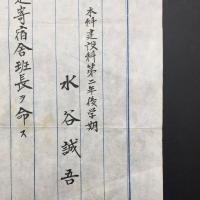 本科建設科第二年後学期
水谷誠吾
寄宿舎班長ヲ命ス